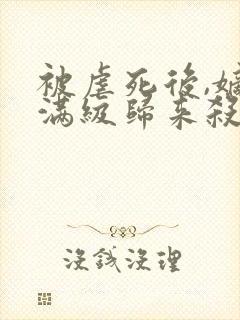 被虐死後,嫡
滿級歸来殺
沒錢沒理